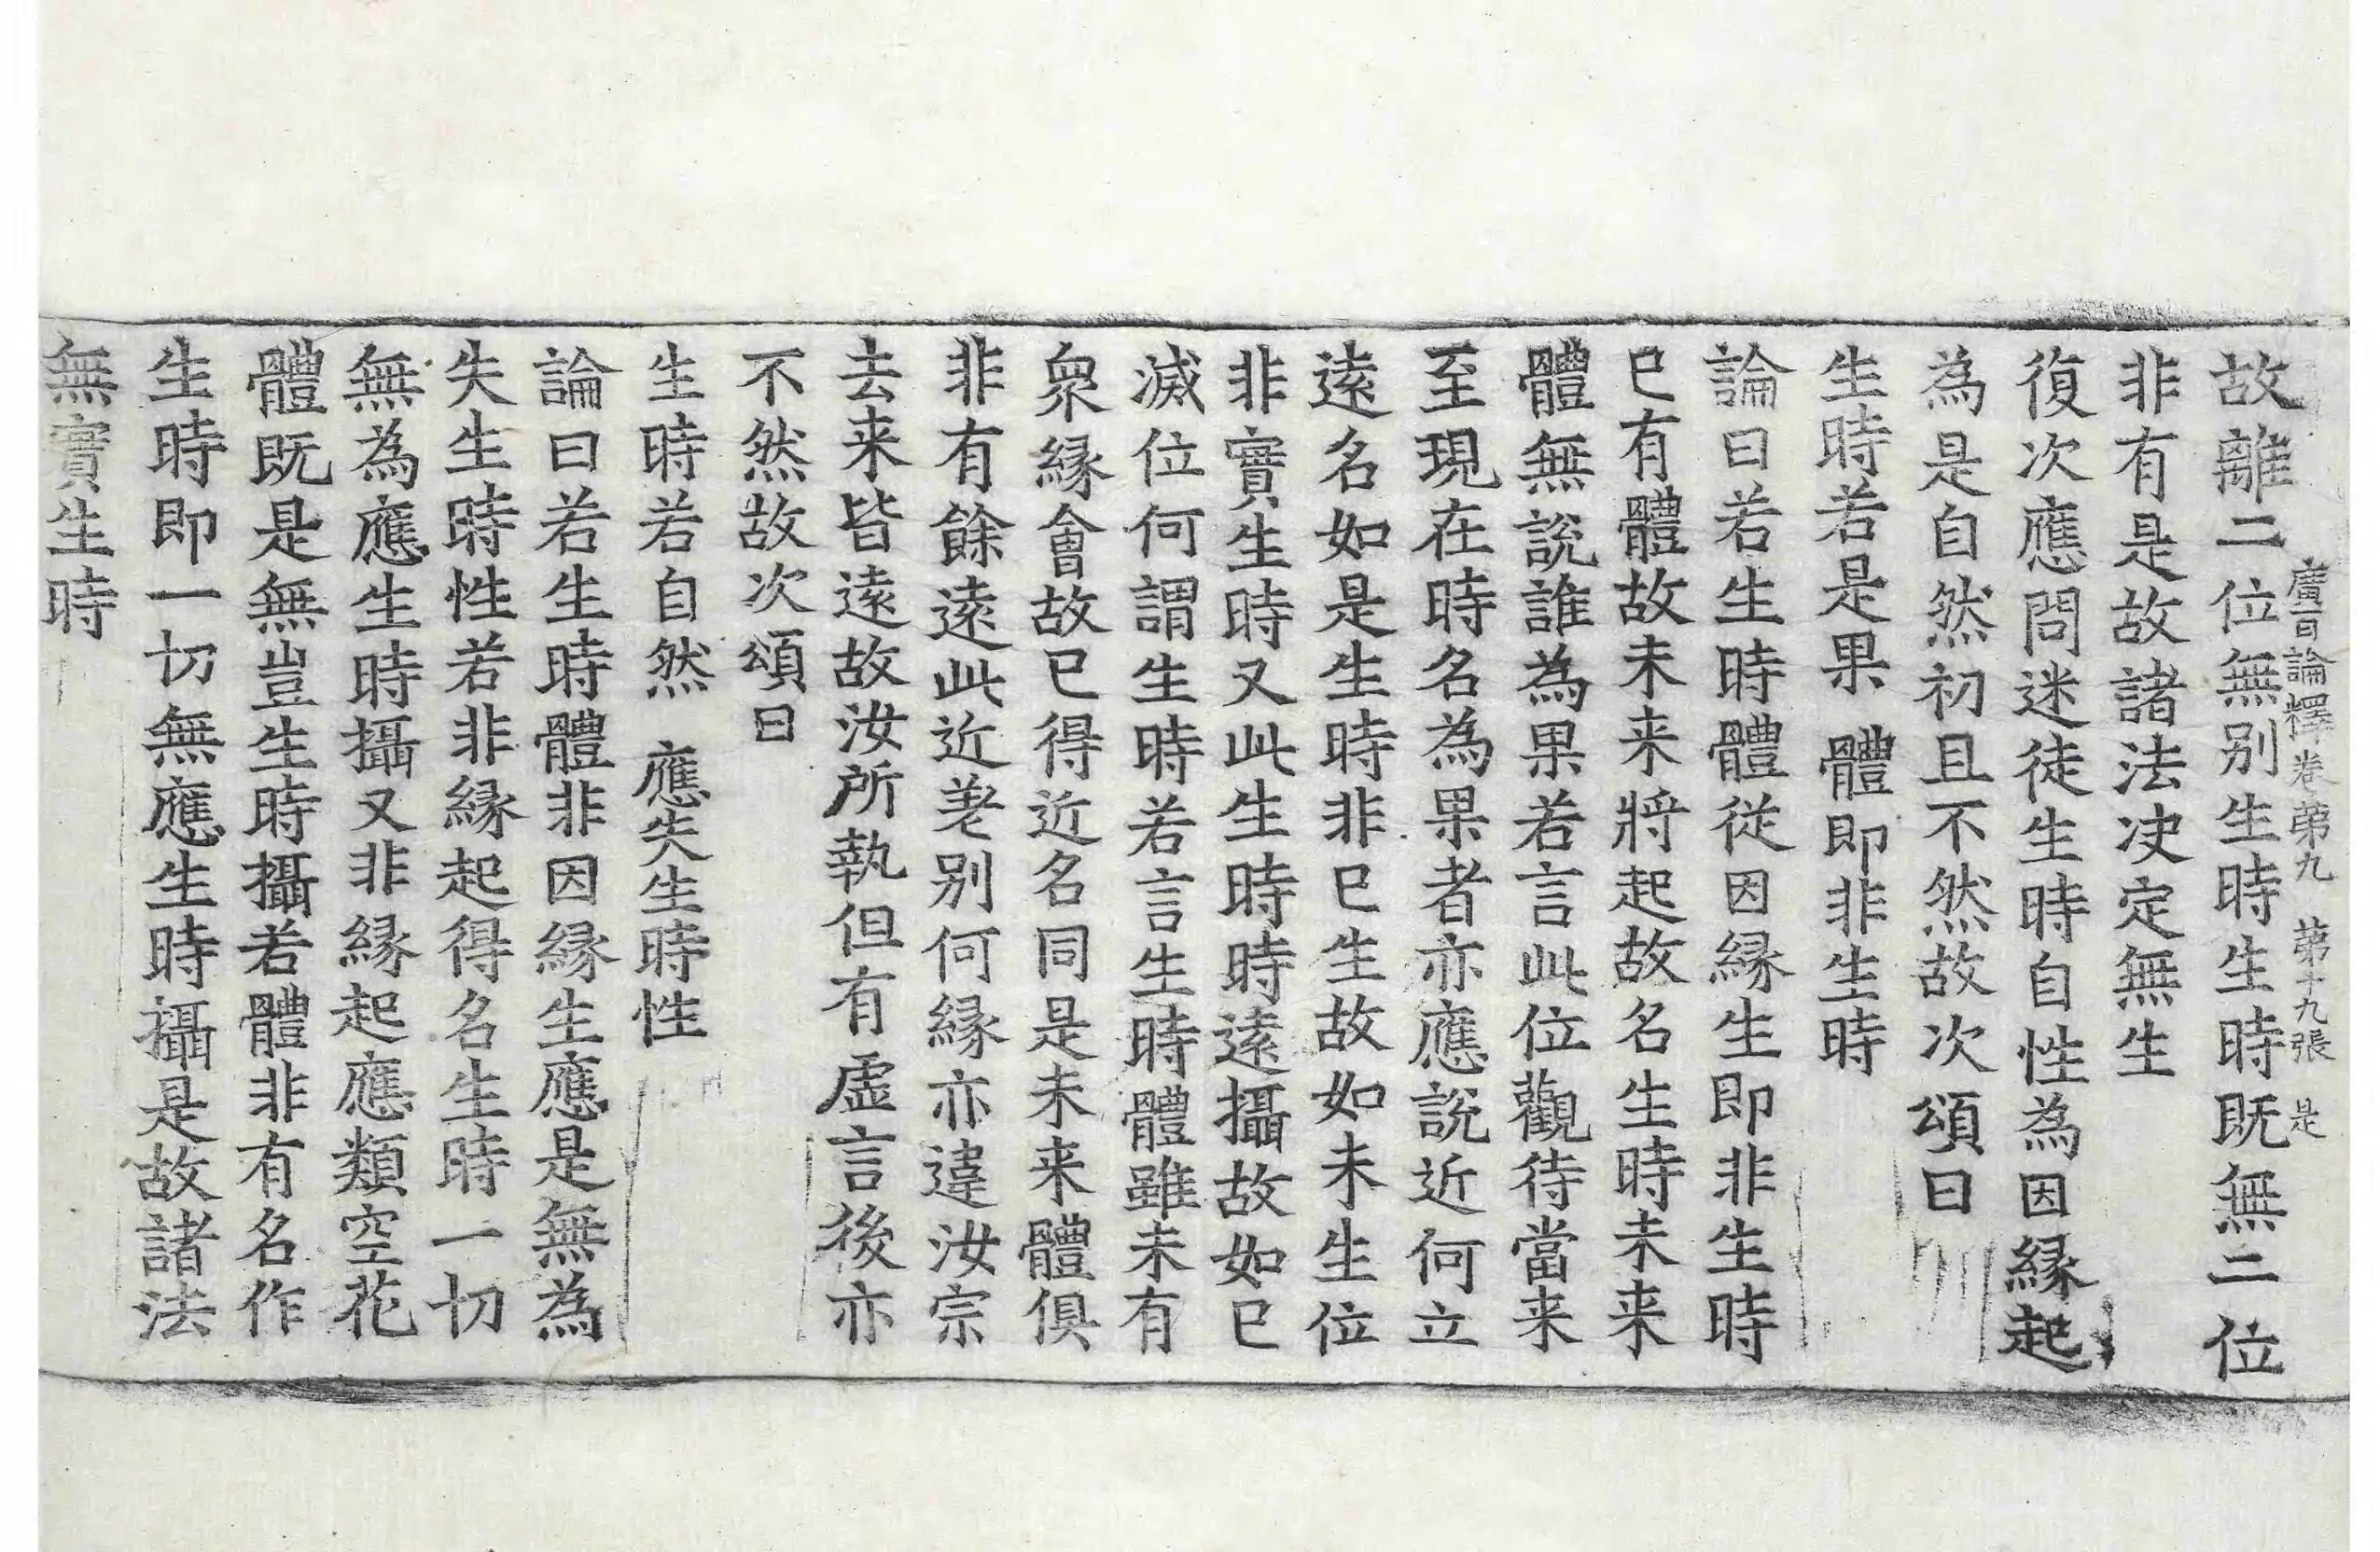 廣百論釋卷苐九　苐十九張　是
故離二位無別生時生時既無二位
非有是故諸法决定無生
復次應問迷徒生時自性為因縁起
為是自然初且不然故次頌曰
生時若是果　體即非生時
論曰若生時體從因縁生即非生時
已有體故未来將起故名生時未来
體無說誰為果若言此位觀待當来
至現在時名為果者亦應說近何立
逺名如是生時非已生故如未生位
非實生時又此生時時逺攝故如已
滅位何謂生時若言生時體雖未有
衆縁會故已得近名同是未来體俱
非有餘逺此近差別何縁亦違汝宗
去来皆逺故汝所執但有虛言後亦
不然故次頌曰
生時若自然　應失生時性
論曰若生時體非因縁生應是無為
失生時性若非縁起得名生時一切
無為應生時攝又非縁起應類空花
體既是無豈生時攝若體非有名作
生時即一切無應生時攝是故諸法
無實生時